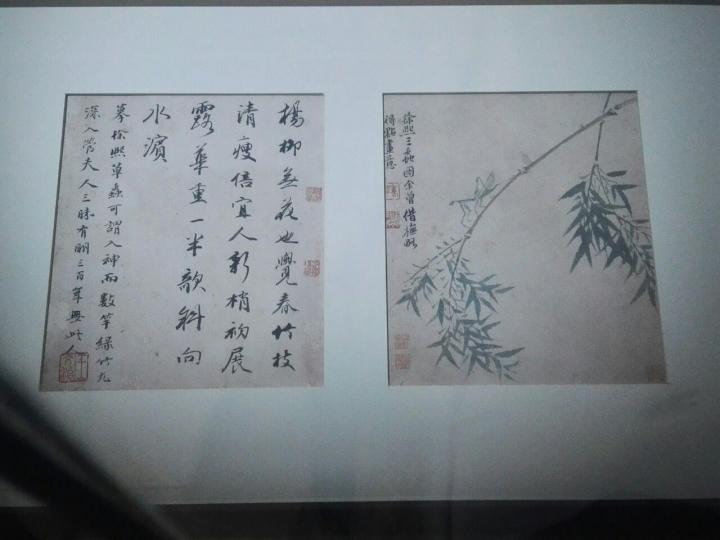 徐熙三蟲圖余曾借撫略
得點畫意
楊柳無花也覺春竹枝
清瘦倍宜人新梢初展
露華重一半欹斜向
水濱
摹徐熙草蟲可謂入神而數竿綠竹尤
深入管夫人三昧有明三百年無此人